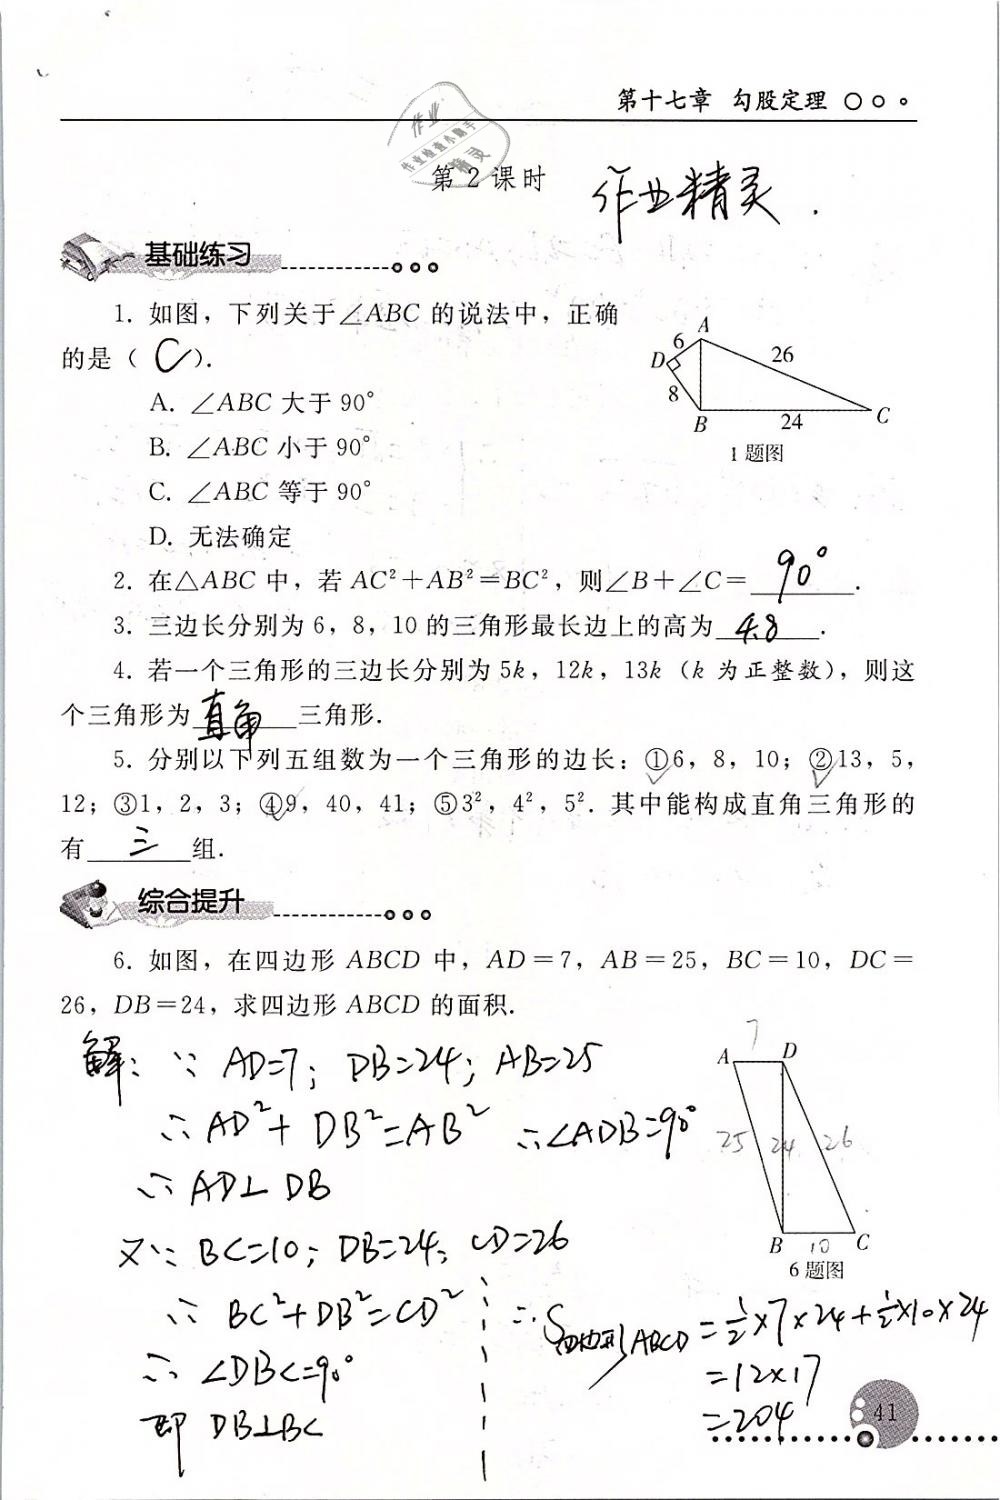 第十七章 勾股定理
作业
作业检查小助手
精灵
第2课时
作业精灵.
基础练习
1. 如图，下列关于∠ABC 的说法中，正确
的是（ C ）.
A. ∠ABC 大于 90°
B. ∠ABC 小于 90°
C. ∠ABC 等于 90°
D. 无法确定
A
6
26
D
8
B
24
C
1 题图
2. 在△ABC 中，若 AC²＋AB²＝BC²，则∠B＋∠C＝ 90° .
3. 三边长分别为 6，8，10 的三角形最长边上的高为 4.8 .
4. 若一个三角形的三边长分别为 5k，12k，13k（k 为正整数），则这
个三角形为 直角 三角形.
5. 分别以下列五组数为一个三角形的边长：①6，8，10；②13，5，
12；③1，2，3；④9，40，41；⑤3²，4²，5². 其中能构成直角三角形的
有 三 组.
综合提升
6. 如图，在四边形 ABCD 中，AD＝7，AB＝25，BC＝10，DC＝
26，DB＝24，求四边形 ABCD 的面积.
解：∵ AD=7; DB=24; AB=25
∴ AD²+DB²=AB² ∴∠ADB=90°
∴ AD⊥DB
又∵ BC=10; DB=24; CD=26
∴ BC²+DB²=CD²
∴ ∠DBC=90°
即 DB⊥BC
∴S四边形ABCD=½×7×24+½×10×24
=12×17
=204
7
A
D
25
24
26
B
10
C
6 题图
41